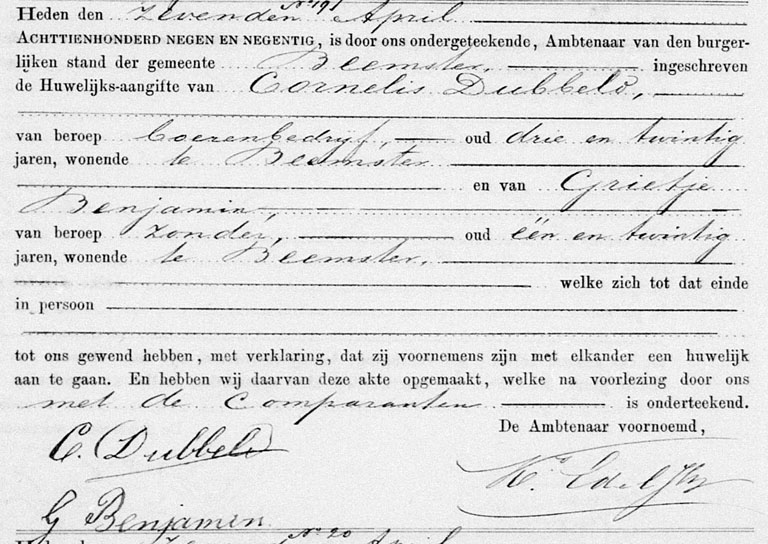 Nº 19
Heden den zevenden April
ACHTTIENHONDERD NEGEN EN NEGENTIG, is door ons ondergeteekende, Ambtenaar van den burger-
lijken stand der gemeente Beemster, ingeschreven
de Huwelijks-aangifte van Cornelis Dubbeld,
van beroep boerenbedrijf, oud drie en twintig
jaren, wonende te Beemster
en van Grietje
Benjamin,
van beroep zonder, oud één en twintig
jaren, wonende te Beemster,
welke zich tot dat einde
in persoon
tot ons gewend hebben, met verklaring, dat zij voornemens zijn met elkander een huwelijk
aan te gaan. En hebben wij daarvan deze akte opgemaakt, welke na voorlezing door ons
met de comparanten is onderteekend.
De Ambtenaar voornoemd,
C. Dubbeld
G Benjamin
Nº 20